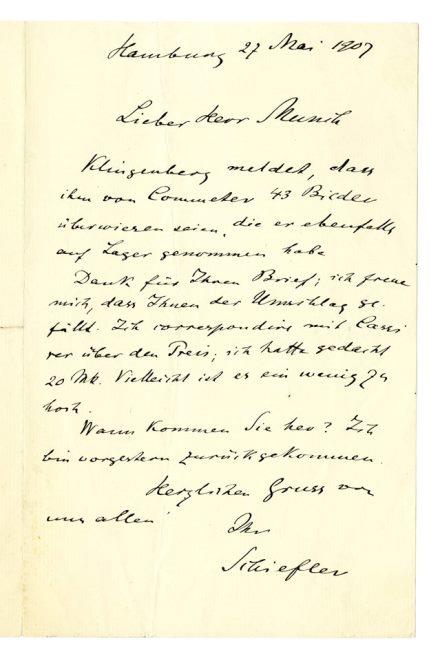 Hamburg 27 Mai 1907
Lieber Herr Munch
Klingenberg meldet, dass
ihm von Commeter 43 Bilder
überwiesen seien, die er ebenfalls
auf Lager genommen habe
Dank für Ihren Brief; ich freue
mich, dass Ihnen der Umschlag ge-
fällt. Ich correspondire mit Cassi
rer über den Preis; ich hatte gedacht
20 Mk. Vielleicht ist es ein wenig zu
hoch.
Wann kommen Sie her? Ich
bin vorgestern zurückgekommen.
Herzlichen Gruss von
uns allen
Ihr
Schiefler